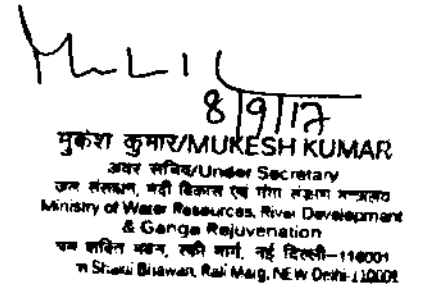 8/9/17
मुकेश कुमार/MUKESH KUMAR
अवर सचिव/Under Secretary
जल संसाधन, नदी विकास एवं गंगा संरक्षण मन्त्रालय
Ministry of Water Resources, River Development
& Ganga Rejuvenation
श्रम शक्ति भवन, रफी मार्ग, नई दिल्ली-110001
Shram Shakti Bhawan, Rafi Marg, NEW Delhi-110001